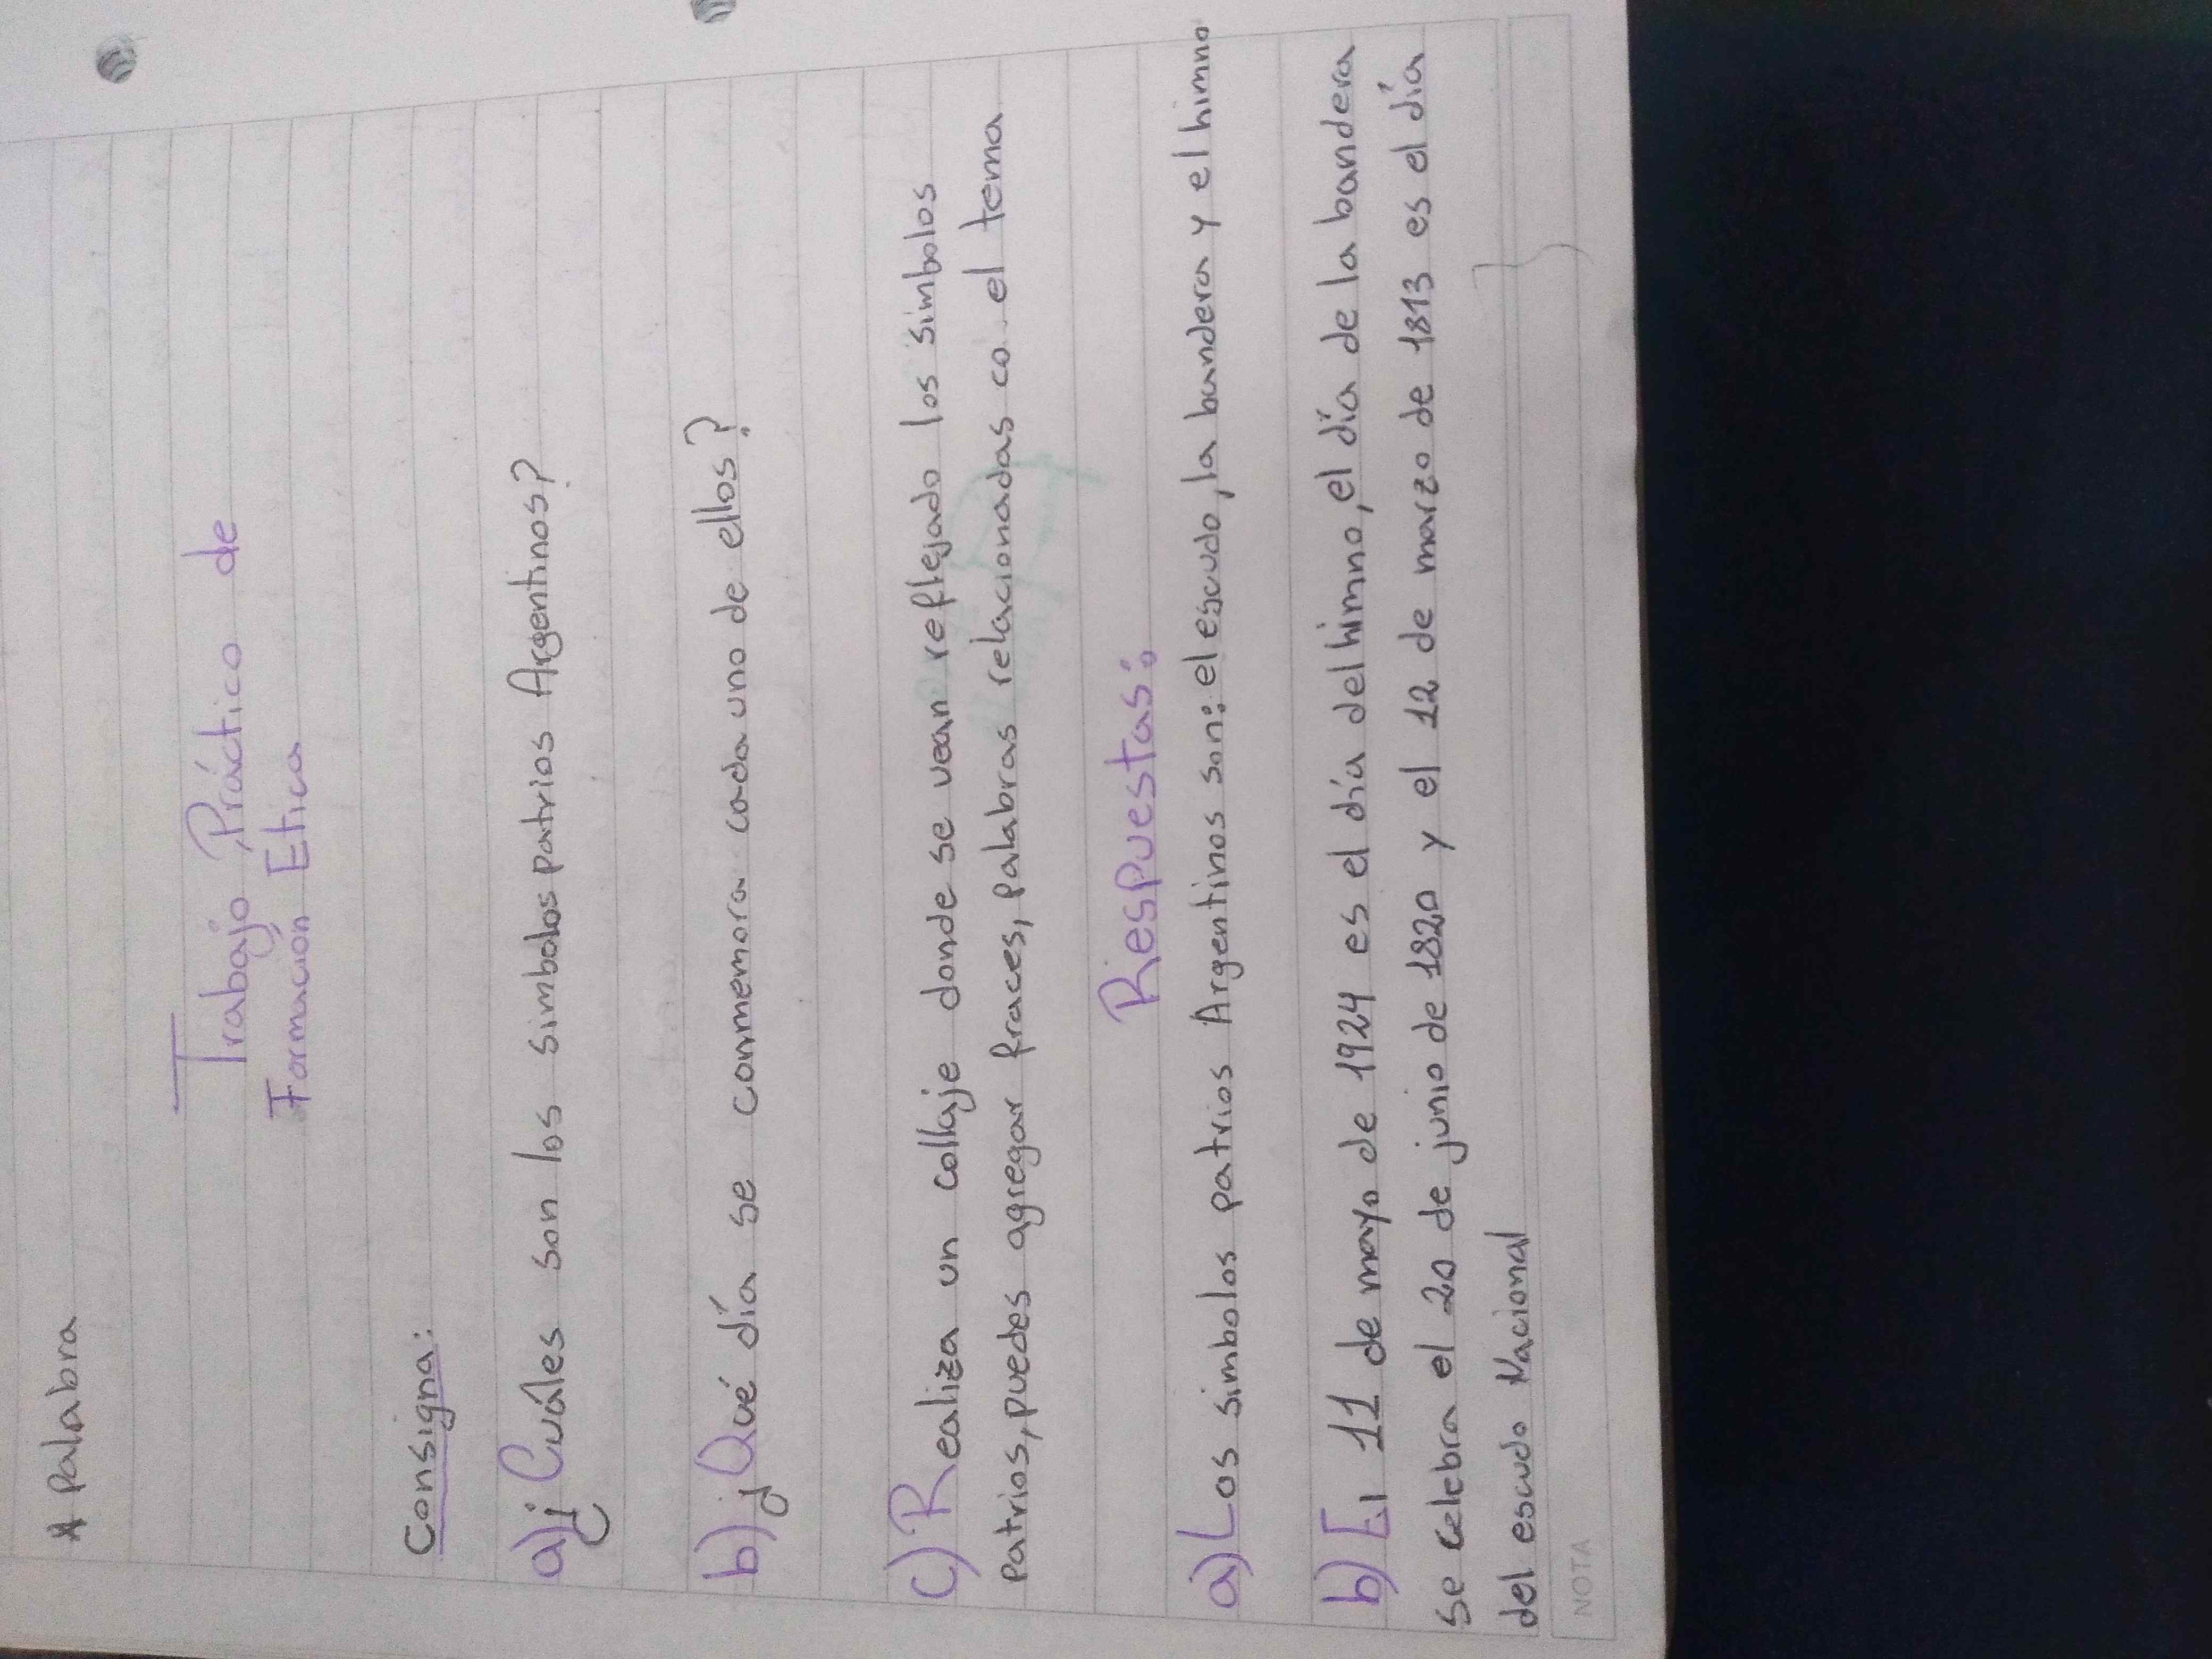 A palabra
Trabajo Práctico de
Formación Etica
Consigna:
a) ¿Cuáles son los simbolos patrios Argentinos?
b) ¿Qué día se conmemora cada uno de ellos?
c) Realiza un collaje donde se vean reflejado los simbolos
patrios, puedes agregar fraces, palabras relacionadas co. el tema
Respuestas:
a) Los simbolos patrios Argentinos son: el escudo, la bandera y el himno
b) El 11 de mayo de 1924 es el día del himno, el día de la bandera
se celebra el 20 de junio de 1820 y el 12 de marzo de 1813 es el día
del escudo Nacional
NOTA